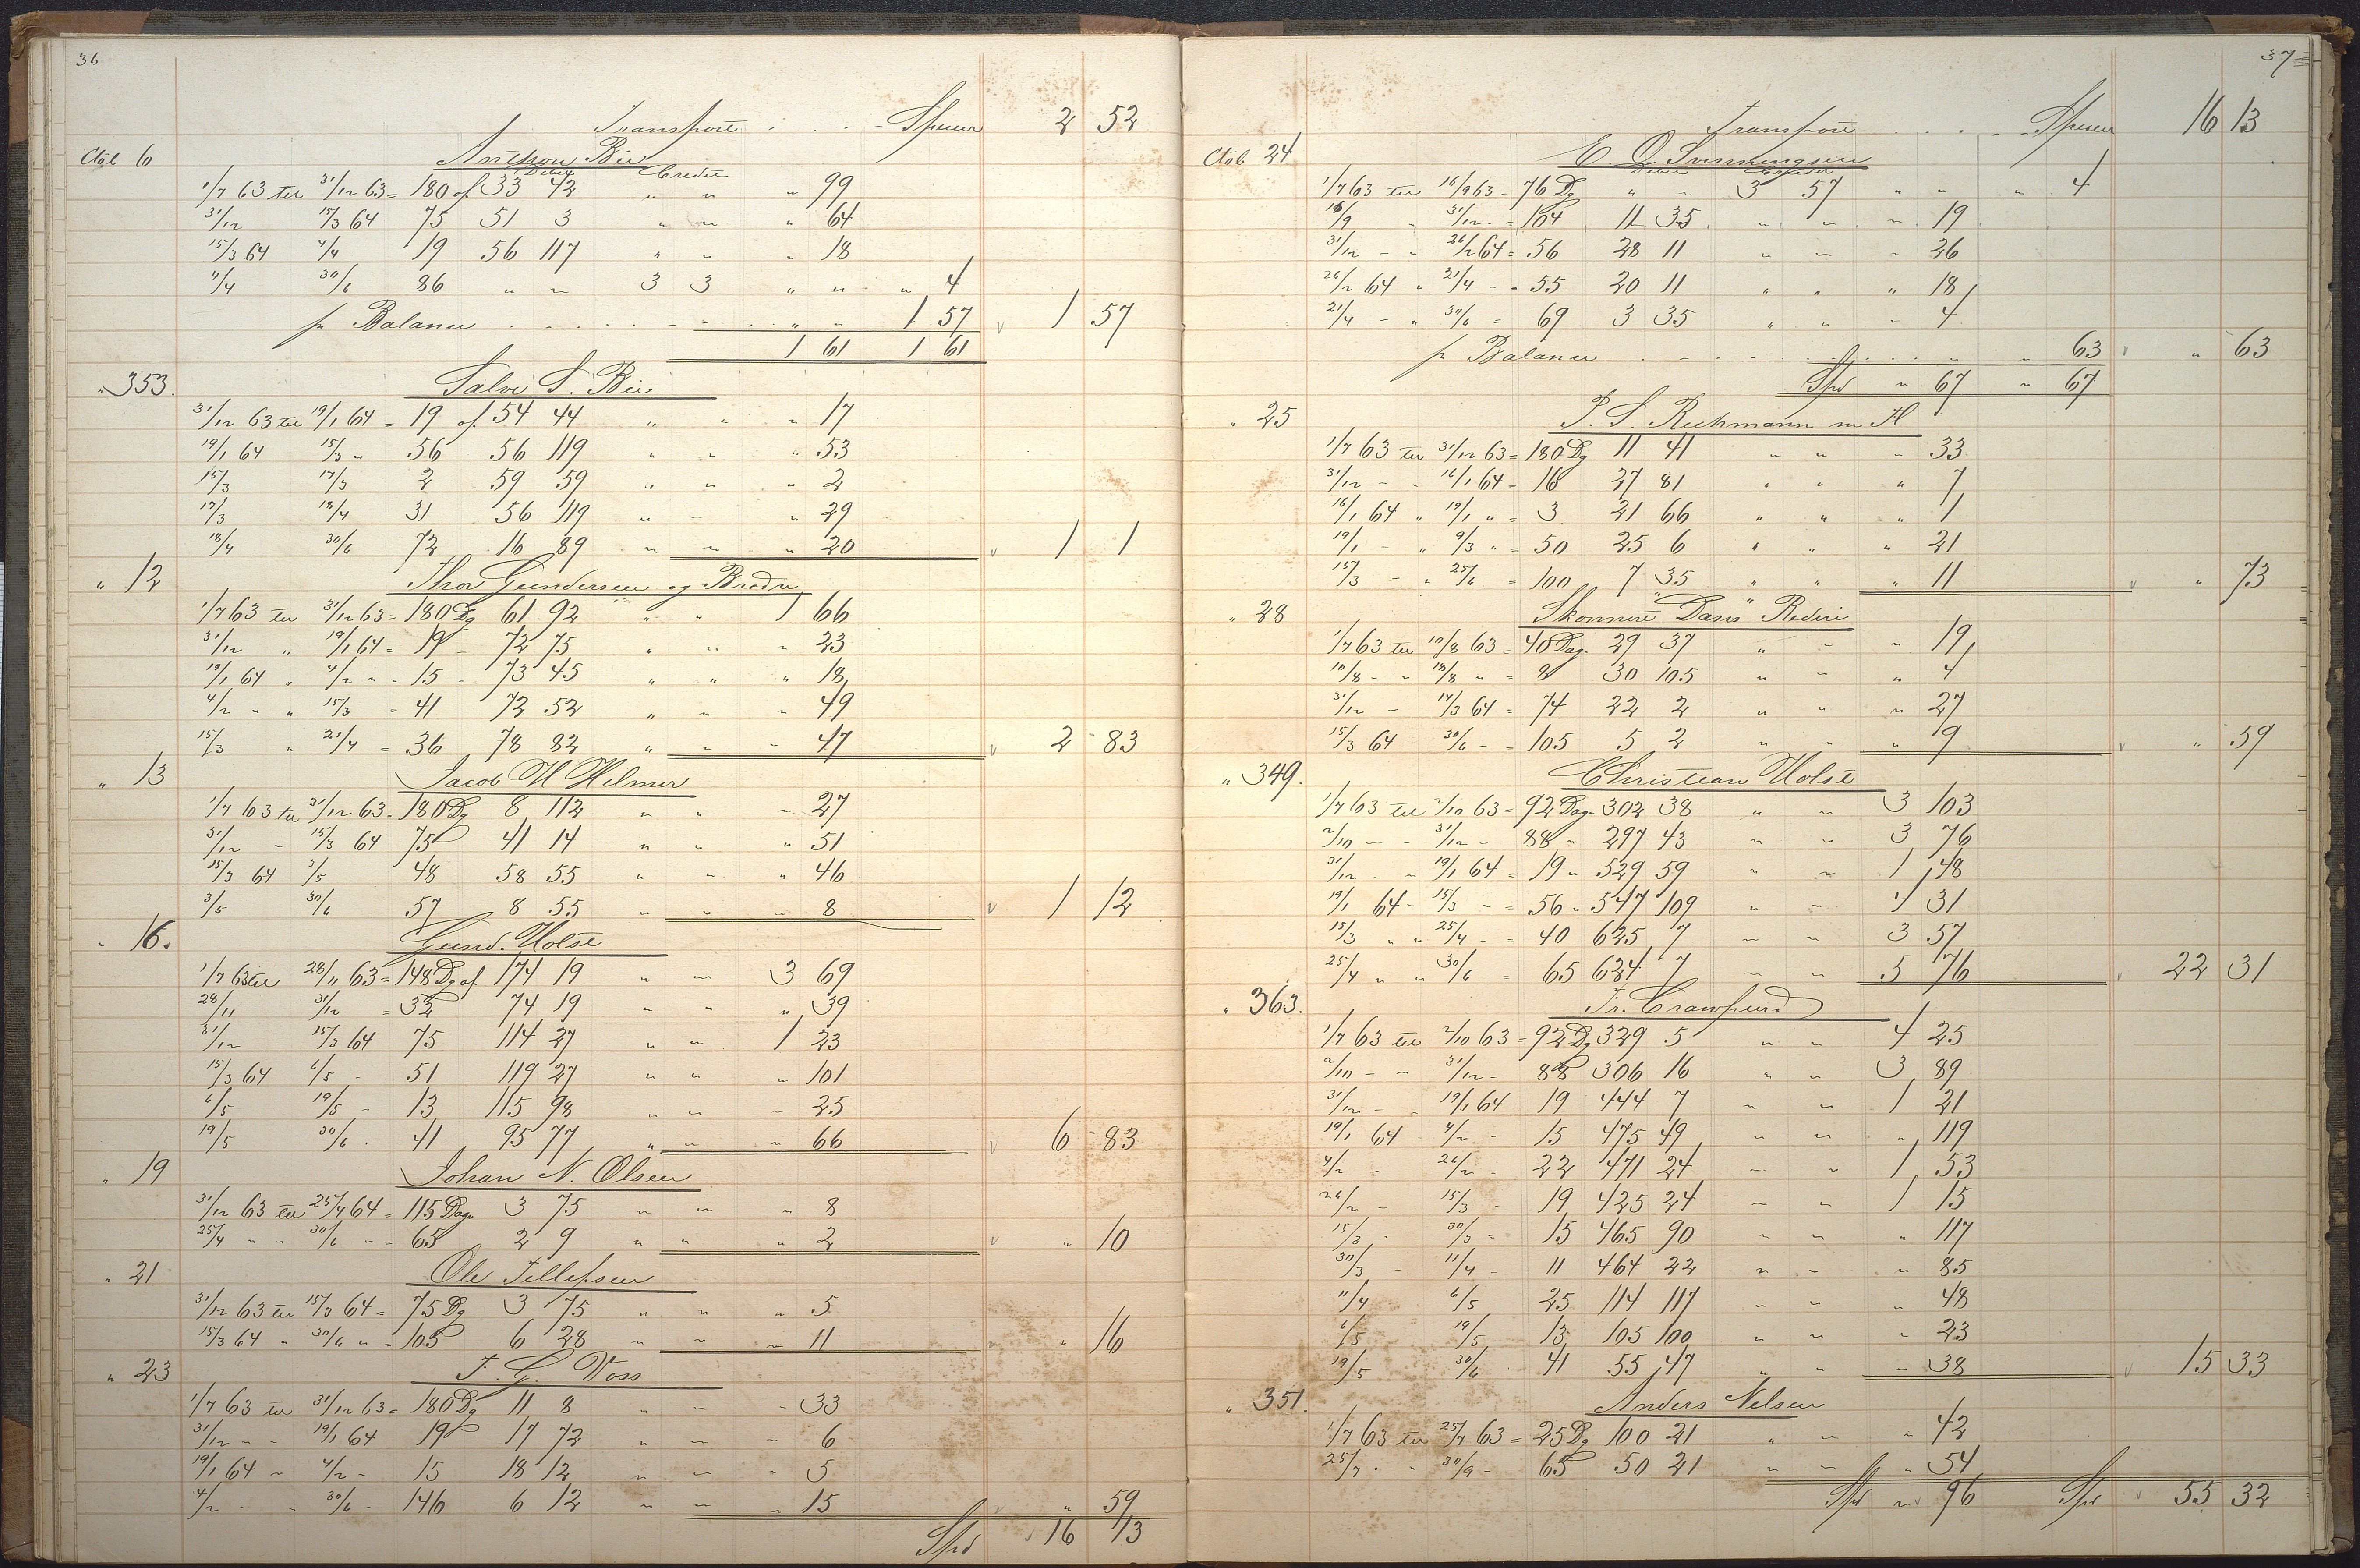 36
Transport . . . Specier 2 52
Ctol 6 Anthon Bie
Debet Credit
1/7 63 til 31/12 63 = 180 af 33 42 " " " 99
31/12 15/3 64 75 51 3 " " " 64
15/3 64 4/4 19 56 117 " " " 18
4/4 30/6 86 " " 3 3 " " " 4
pr Balance . . . . . . " " 1 57 1 57
1 61 1 61
" 353. Salve S. Bie
31/12 63 til 19/1 64 = 19 af 54 44 " " " 17
19/1 64 15/3 " 56 56 119 " " " 53
15/3 17/3 2 59 59 " " " 2
17/3 18/4 31 56 119 " " " 29
18/4 30/6 72 16 89 " " " 20 1 1
" 12 Thor Gundersen og Brødre
1/7 63 til 31/12 63 = 180 Dg 61 92 " " 1 66
31/12 " 19/1 64 = 19 - 72 75 " " " 23
19/1 64 " 4/2 " - 15 - 73 45 " " " 18
4/2 " " 15/3 - 41 72 52 " " " 49
15/3 " 21/4 = 36 78 82 " " " 47 2 83
" 13 Jacob H Helmer
1/7 63 til 31/12 63 - 180 Dg 8 112 " " " 27
31/12 - 15/3 64 75 41 14 " " " 51
15/3 64 3/5 48 58 55 " " " 46
3/5 30/6 57 8 55 " " " 8 1 12
" 16. Gund. Holst
1/7 63 til 28/11 63 = 148 Dg af 174 19 " " 3 69
28/11 31/12 = 32 74 19 " " " 39
31/12 15/3 64 75 114 27 " " 1 23
15/3 64 6/5 - 51 119 27 " " " 101
6/5 19/5 - 13 115 98 " " " 25
19/5 30/6 . 41 95 77 " " " 66 6 83
" 19 Johan N. Olsen
31/12 63 til 25/4 64 = 115 Dage 3 75 " " " 8
25/4 - - 30/6 - = 65 2 9 " " " 2 " 10
" 21 Ole Tellefsen
31/12 63 til 15/3 64 = 75 Dg 3 75 " " " 5
15/3 64 " 30/6 " = 105 6 28 " " " 11 " 16
" 23 T. G. Voss
1/7 63 til 31/12 63 = 180 Dg 11 8 " " - 33
31/12 - - 19/1 64 19 17 72 " " - 6
19/1 64 - 4/2 - 15 18 12 " " - 5
4/2 - - 30/6 - 146 6 12 " " " 15 " 59
Spd 16 13
37
Transport . . . . Specier 16 13
Ctol 24
Debet Credit
1/7 63 til 16/9 63 = 76 Dg " " 3 57 " " " 4
16/9 " 31/12 - = 104 11 35 " " " 19
31/12 - - 26/2 64 = 56 28 11 " " " 26
26/2 64 " 21/4 - = 55 20 11 " " " 18
21/4 - " 30/6 = 69 3 35 " " " 4
pr Balance . . . . . . " " 63 " 63
Spd " 67 " 67
" 25
1/7 63 til 31/12 63 = 180 Dg 11 41 " " " 33
31/12 - - 16/1 64 - 16 27 81 " " " 7
16/1 64 " 19/1 " = 3 21 66 " " " 1
19/1 - " 9/3 " = 50 25 6 " " " 21
15/3 - " 25/6 = 100 7 35 " " " 11 " 73
" 28 Skonnert "Dans" Rederi
1/7 63 til 10/8 63 = 40 Dag. 29 37 " - - 19
10/8 - - 18/8 " = 8 30 105 " " " 4
31/12 - 14/3 64 = 74 22 2 " " " 27
15/3 64 30/6 - = 105 5 2 " " " 9 " 59
" 349. Christian Holst
1/7 63 til 2/10 63 = 92 Dag. 302 38 " " 3 103
2/10 - - 31/12 - 88 - 297 43 " " 3 76
31/12 - - 19/1 64 = 19 " 529 59 " " 1 48
19/1 64 - 15/3 - = 56 " 547 109 " - 4 31
15/3 " " 25/4 - = 40 625 7 - " 3 57
25/4 " " 30/6 = 65 624 7 - " 5 76 22 31
" 363. Fr. Crawfurd
1/7 63 til 2/10 63 = 92 Dg 329 5 " " 4 25
2/10 - - 31/12 - 88 306 16 " " 3 89
31/12 - 19/1 64 19 444 7 " " 1 21
19/1 64 4/2 - 15 475 49 " " " 119
4/2 - 26/2 - 22 471 24 - " 1 53
26/2 - 15/3 - 19 425 24 - " 1 15
15/3 . 30/3 - 15 465 90 " " " 117
30/3 - 11/4 - 11 464 22 " " " 85
11/4 6/5 25 114 117 " " " 48
6/5 19/5 13 105 100 " " " 23
19/5 30/6 41 55 47 " " - 38 15 33
" 351. Anders Nelsen
1/7 63 til 25/7 63 = 25 Dg 100 21 " " " 42
25/7 . - 30/9 - 65 50 21 " " " 54
Spd " 96 Spd 55 32